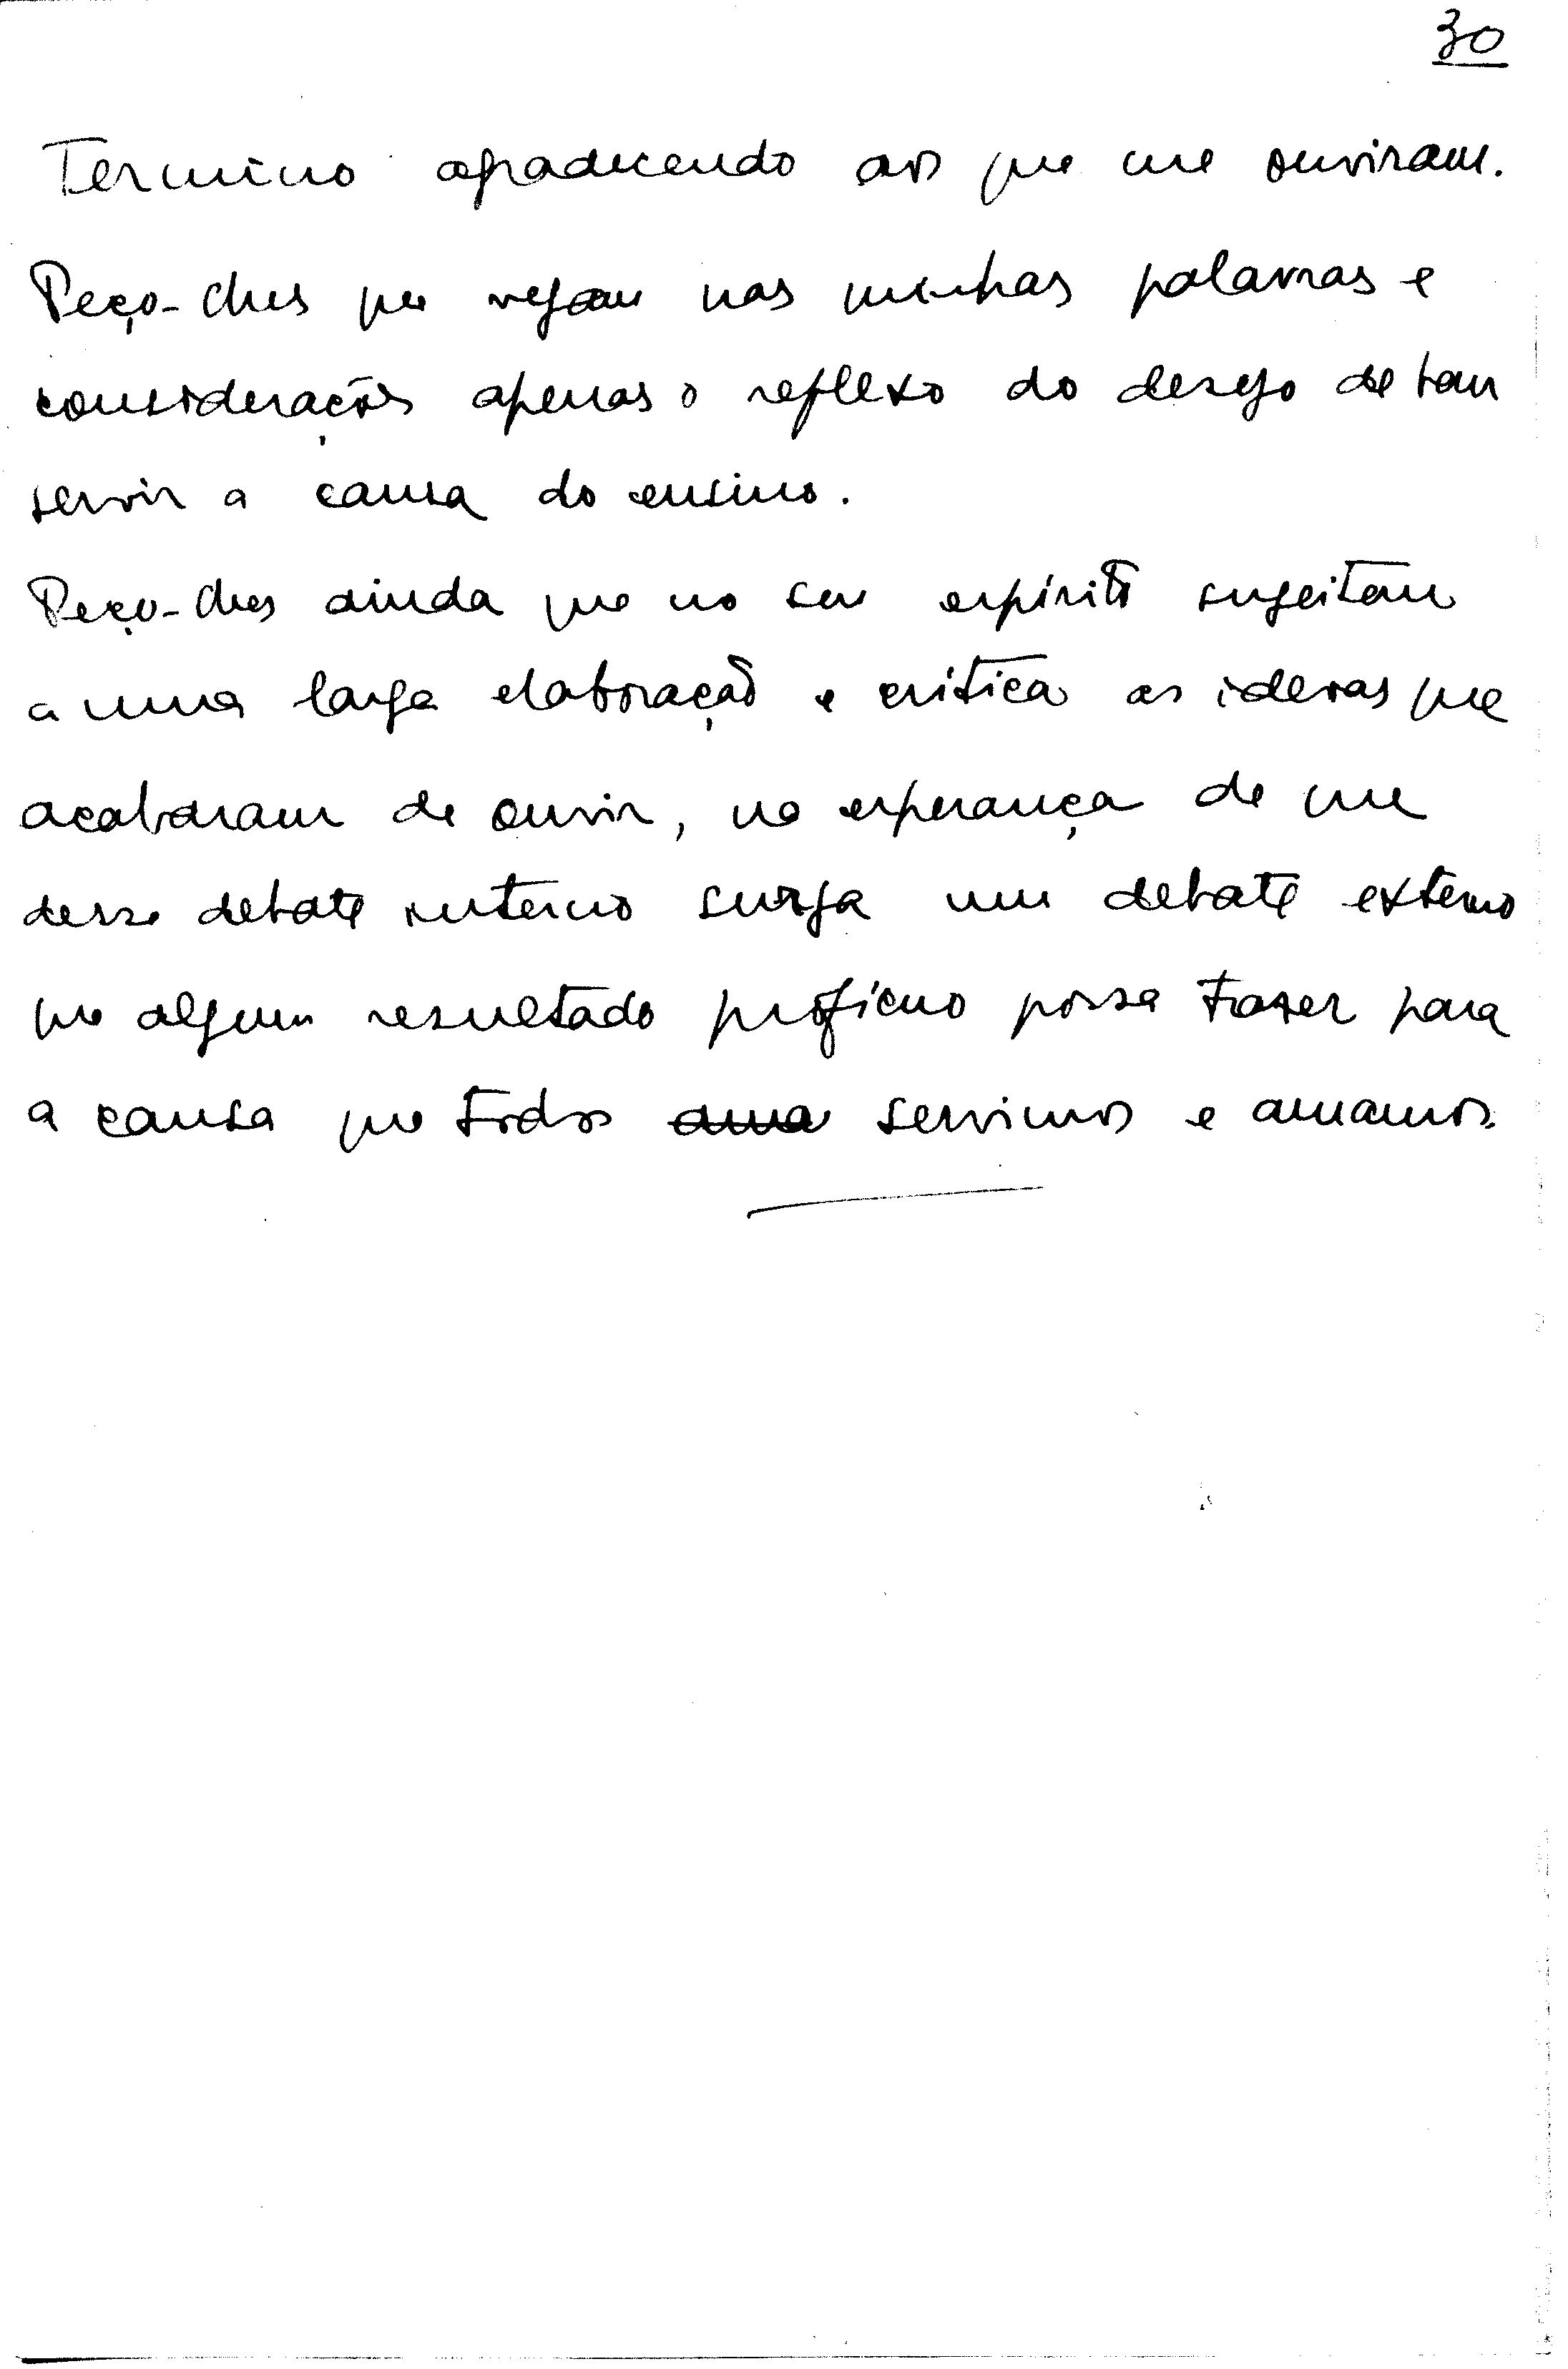 30
Termino agradecendo aos que me ouviram.
Peço-lhes que vejam nas minhas palavras e
considerações apenas o reflexo do desejo de bem
servir a causa do ensino.
Peço-lhes ainda que no seu espírito sugeitem
a uma larga elaboração e critica as ideias que
acabaram de ouvir, na esperança de que
desse debate interno surja um debate externo
que algum resultado profícuo possa trazer para
a causa que todos ama servimos e amamos.